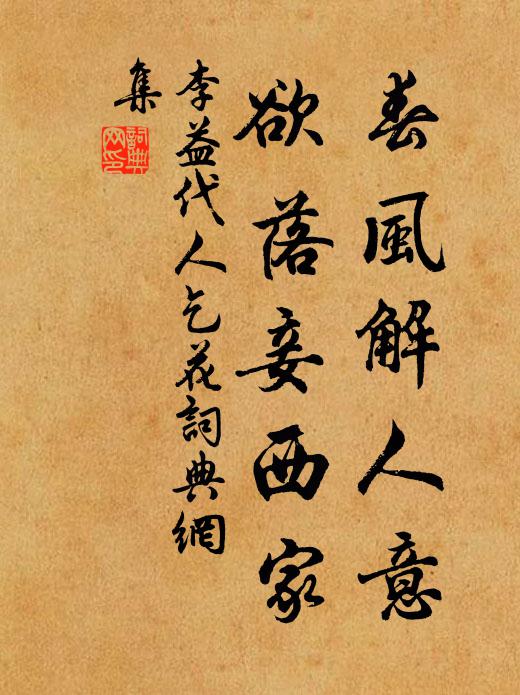 春風解人意
欲落妾西家
李益代人乞花詞典網
集
詞典網印